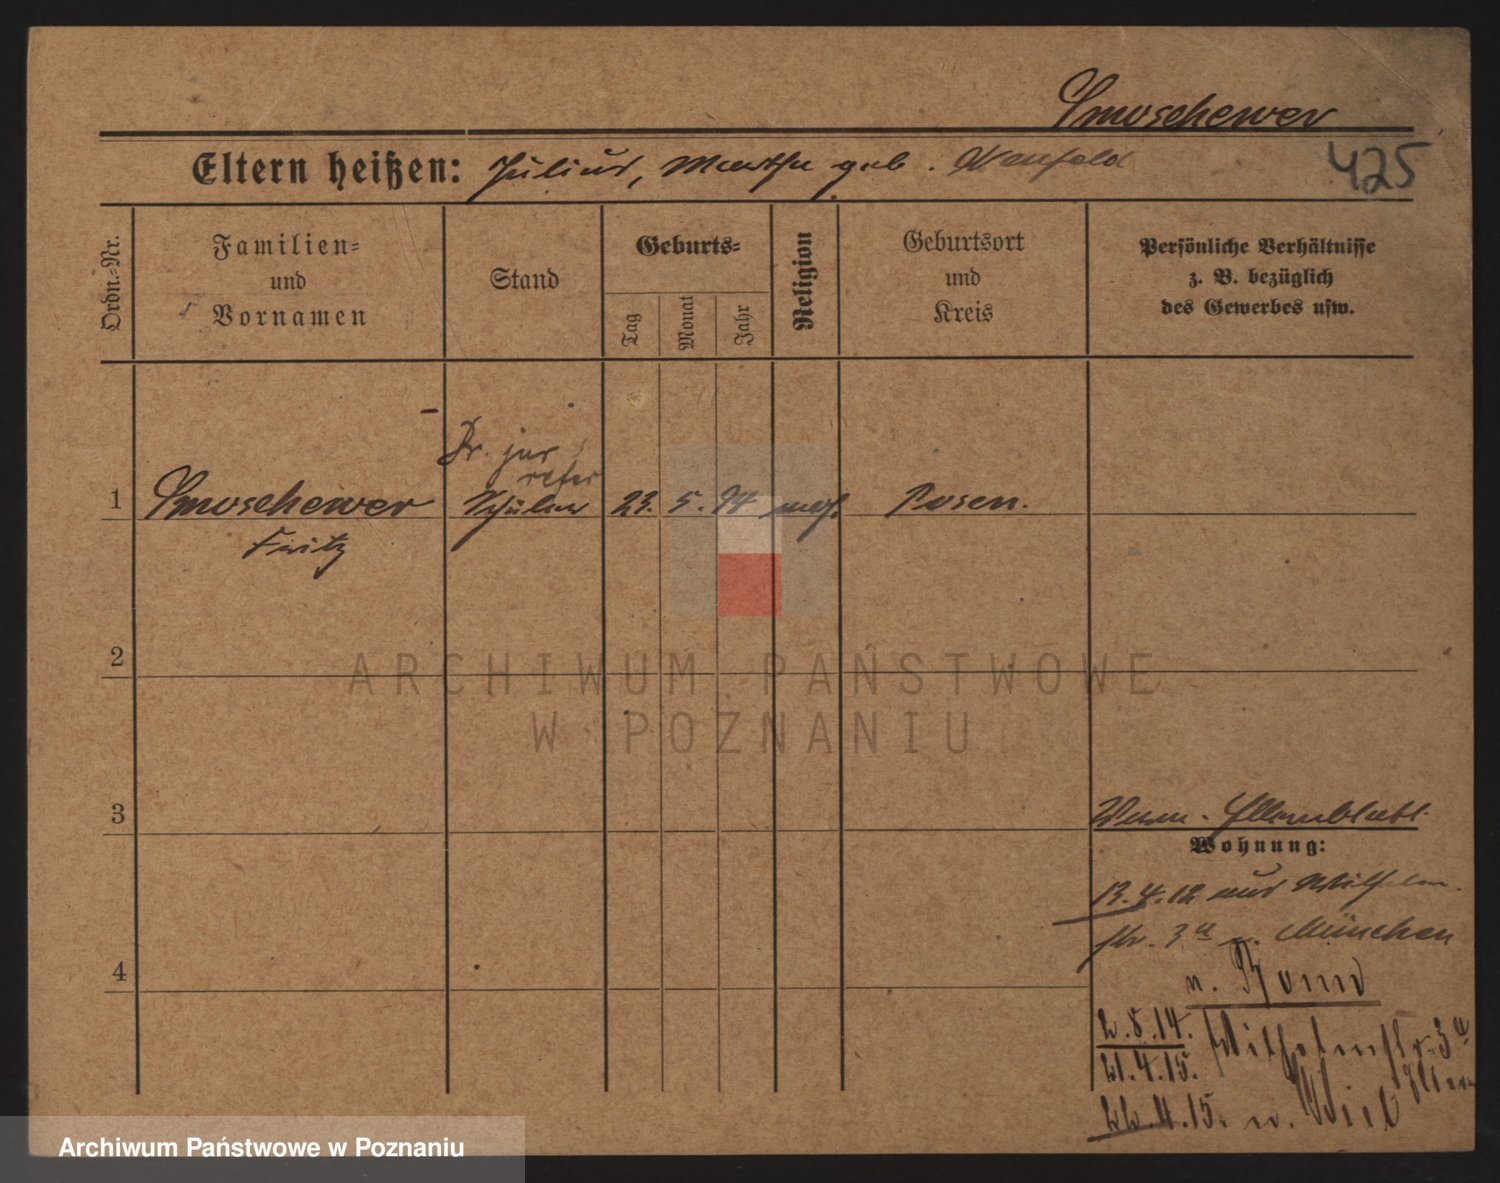 Smoschewer
Eltern heißen: Julius, Martha geb. 
425
Ordn.-Nr.
Familien-
und
Vornamen
Stand
Geburts-
Tag
Monat
Jahr
Religion
Geburtsort
und
Kreis
Persönliche Verhältnisse
z. B. bezüglich
des Gewerbes usw.
Dr. jur
refer
1 Smoschewer Schüler 23. 5. 94 mos. Posen.
Fritz
2
ARCHIWUM PAŃSTWOWE
W POZNANIU
3
Wohnung:
13.4.12 aus Wilhelm-
str. 3a n. München
4
n. Bonn
2.8.14. Wilhelmstr. 3a
21.4.15.
22.4.15. n. Kiel
Archiwum Państwowe w Poznaniu